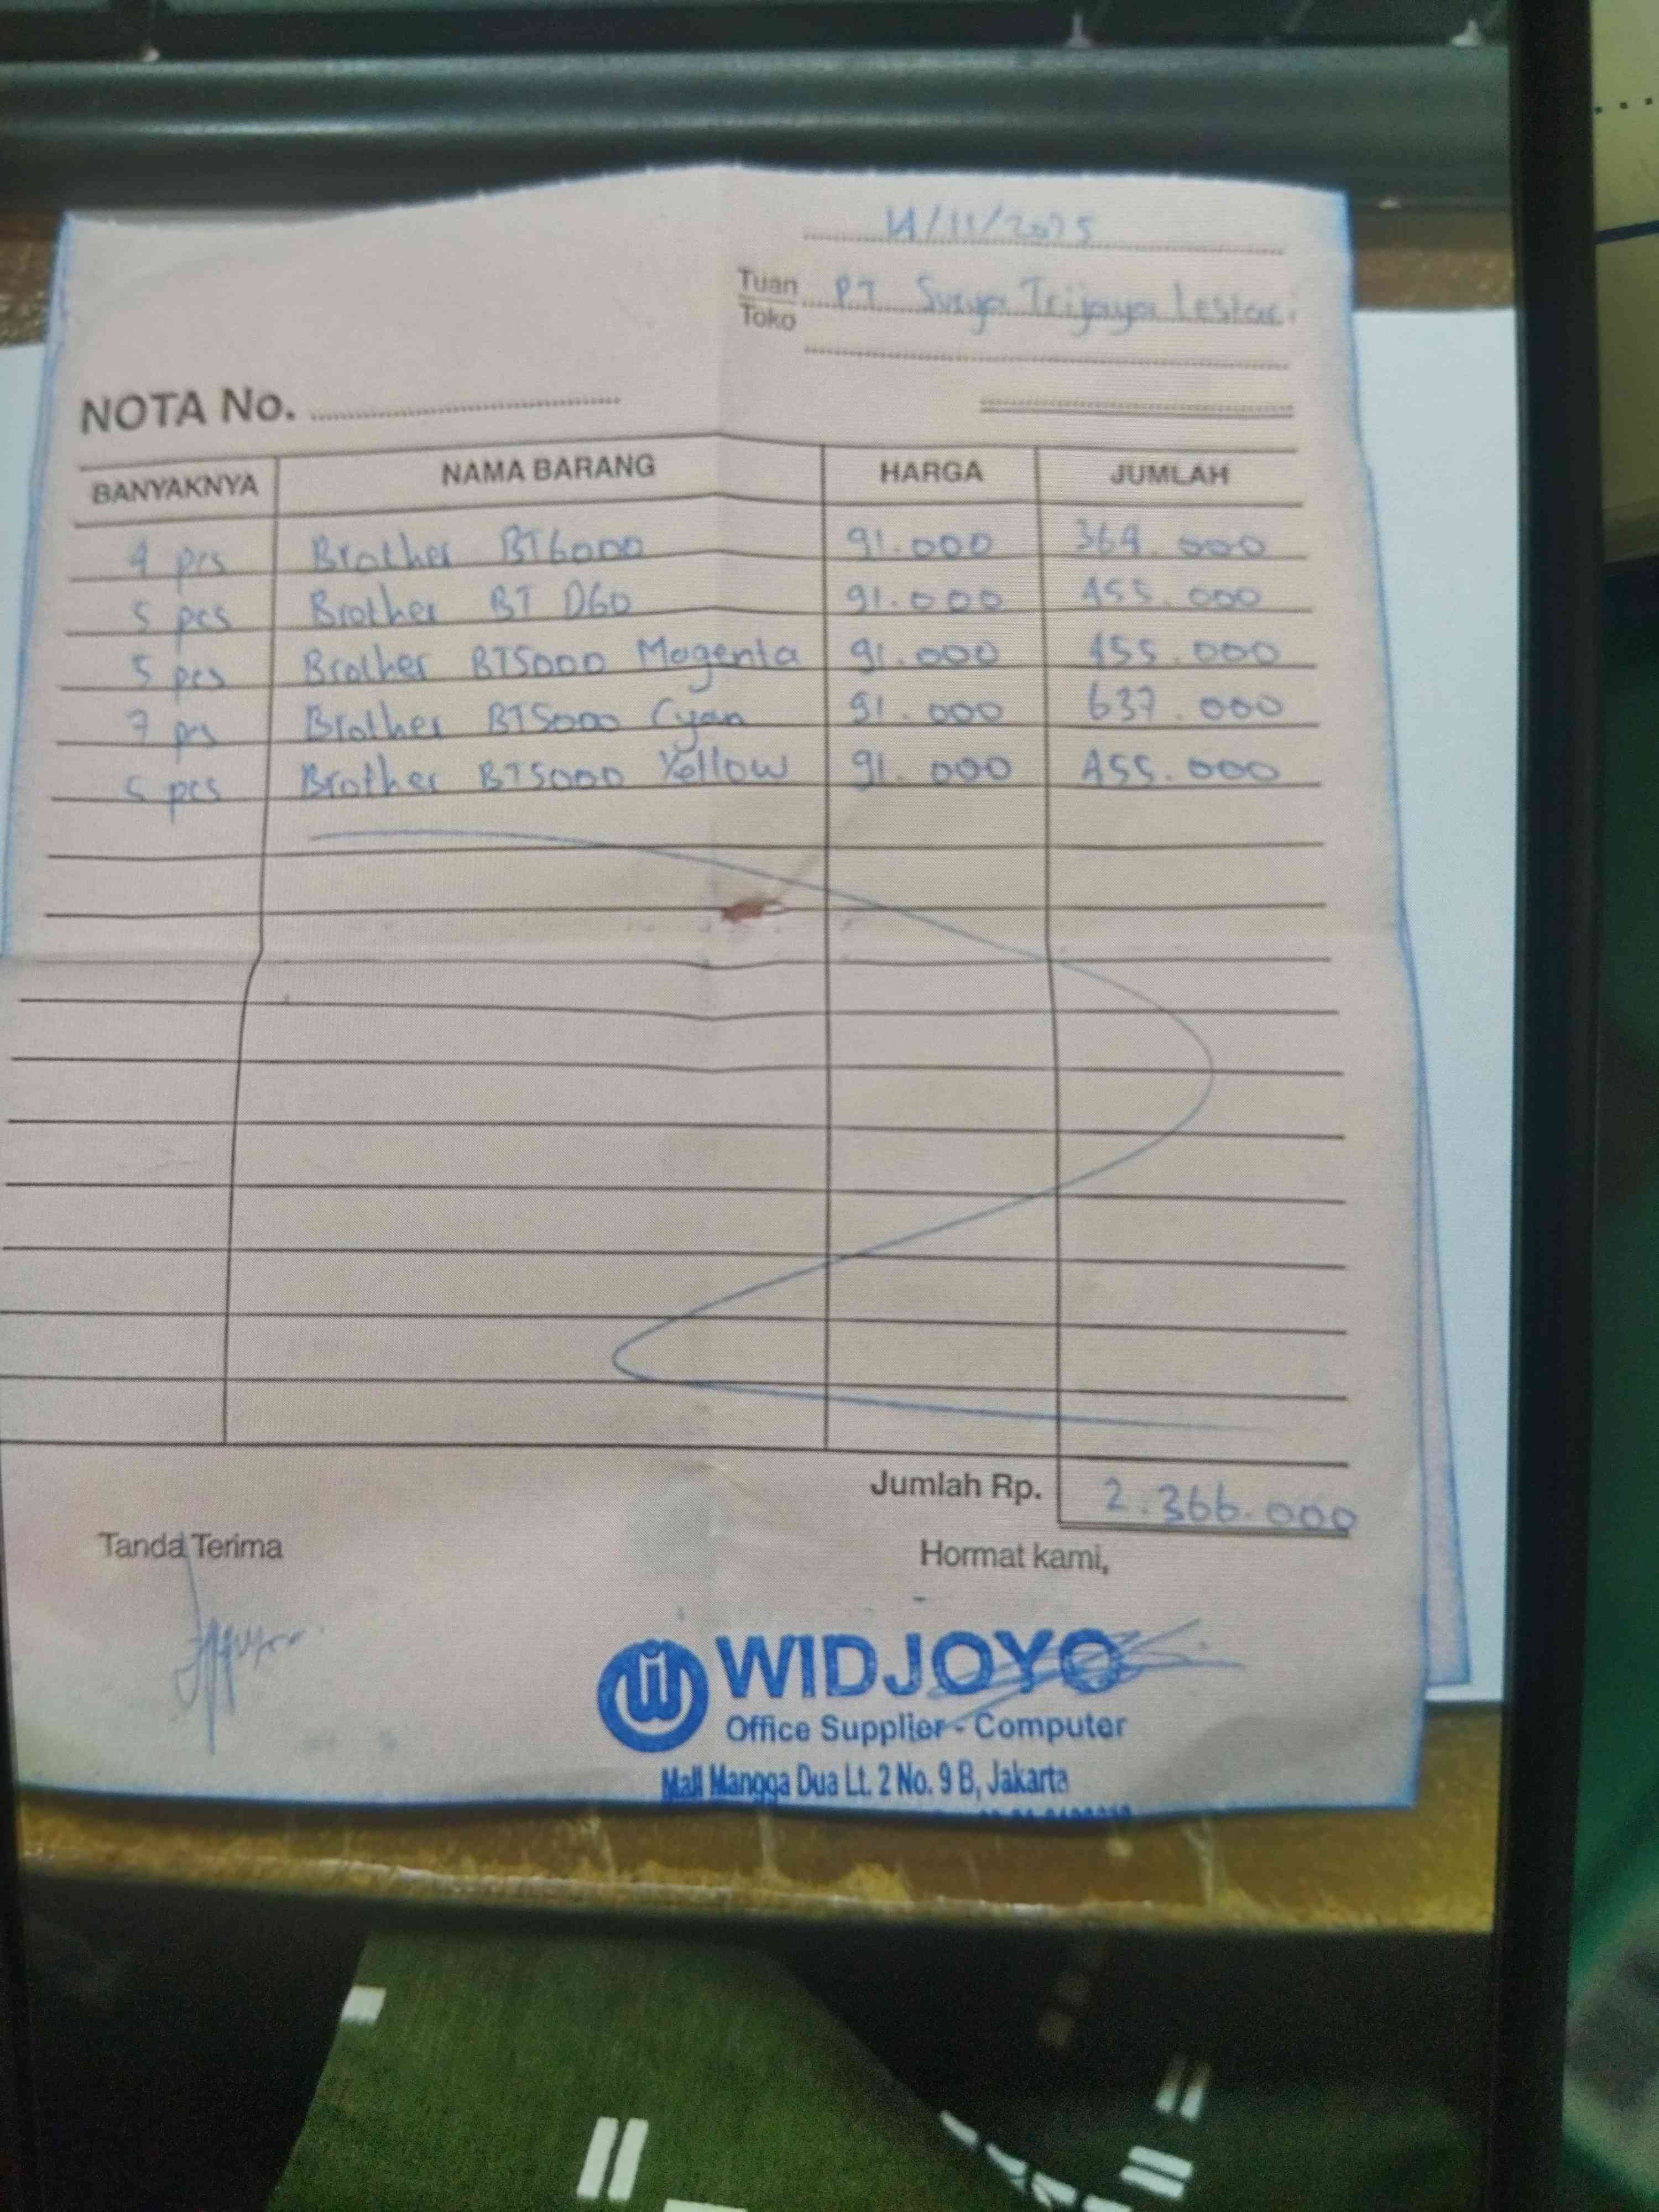 14/11/2025
Tuan PT Surya Trijaya Lestari
Toko
NOTA No.
BANYAKNYA NAMA BARANG HARGA JUMLAH
4 pcs Brother BT6000 91.000 364.000
5 pcs Brother BT D60 91.000 455.000
5 pcs Brother BT5000 Magenta 91.000 455.000
7 pcs Brother BT5000 Cyan 91.000 637.000
5 pcs Brother BT5000 Yellow 91.000 455.000
Jumlah Rp. 2.366.000
Tanda Terima Hormat kami,
WIDJOYO
Office Supplier - Computer
Mall Mangga Dua Lt. 2 No. 9 B, Jakarta